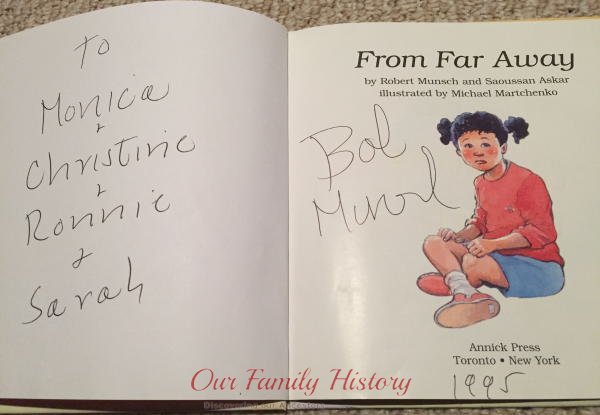 To
Monica
+
Christine
+
Ronnie
+
Sarah
From Far Away
by Robert Munsch and Saoussan Askar
illustrated by Michael Martchenko
Bob
Munsch
Annick Press
Toronto • New York
1995
Our Family History
Discovering our Ancestors